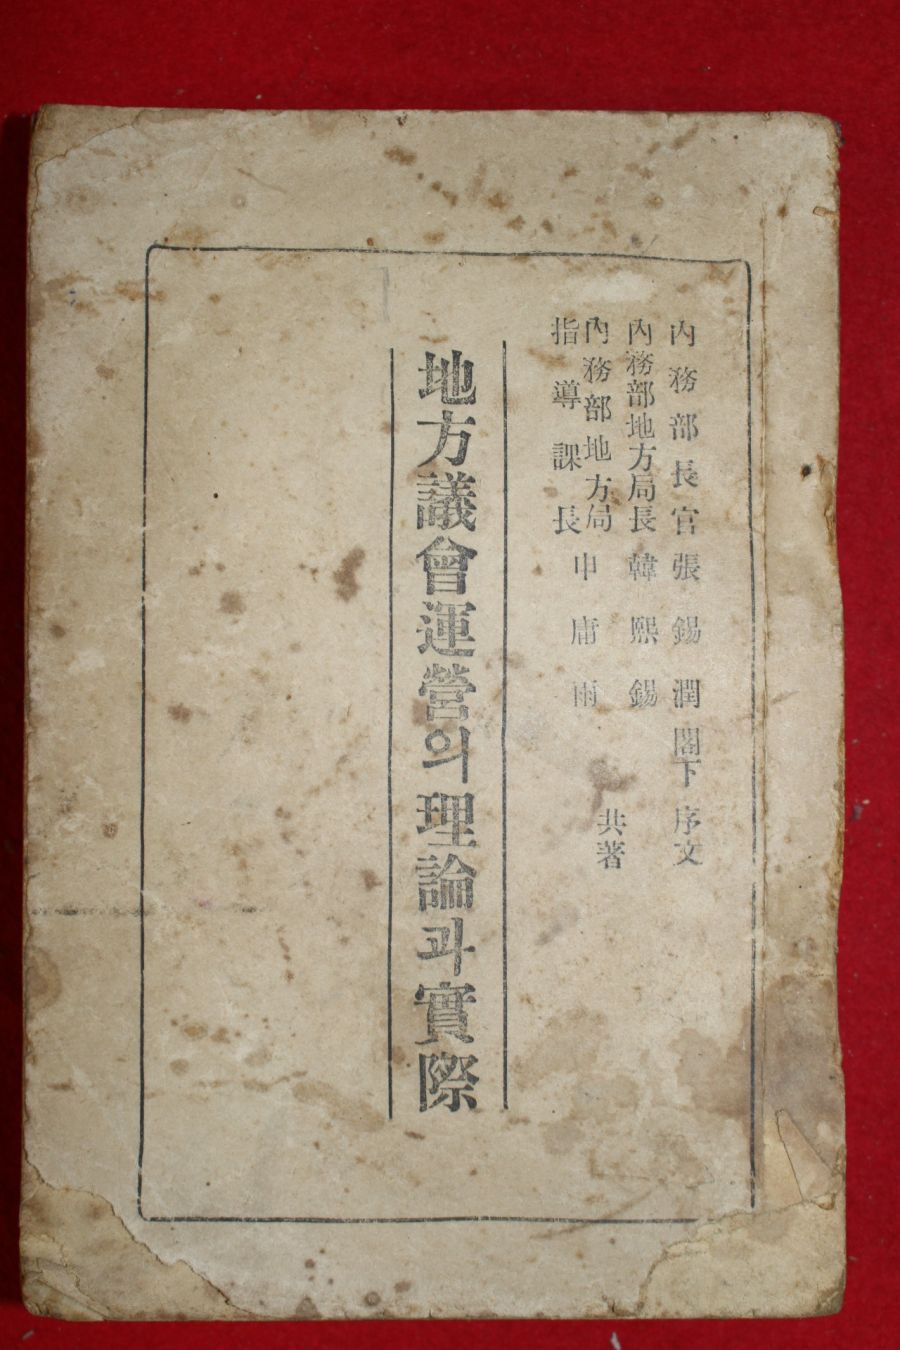 內務部長官 張錫潤 閣下 序文
內務部地方局長 韓熙錫
內務部地方局
指導課長 申庸雨
共著
地方議會運營의 理論과 實際